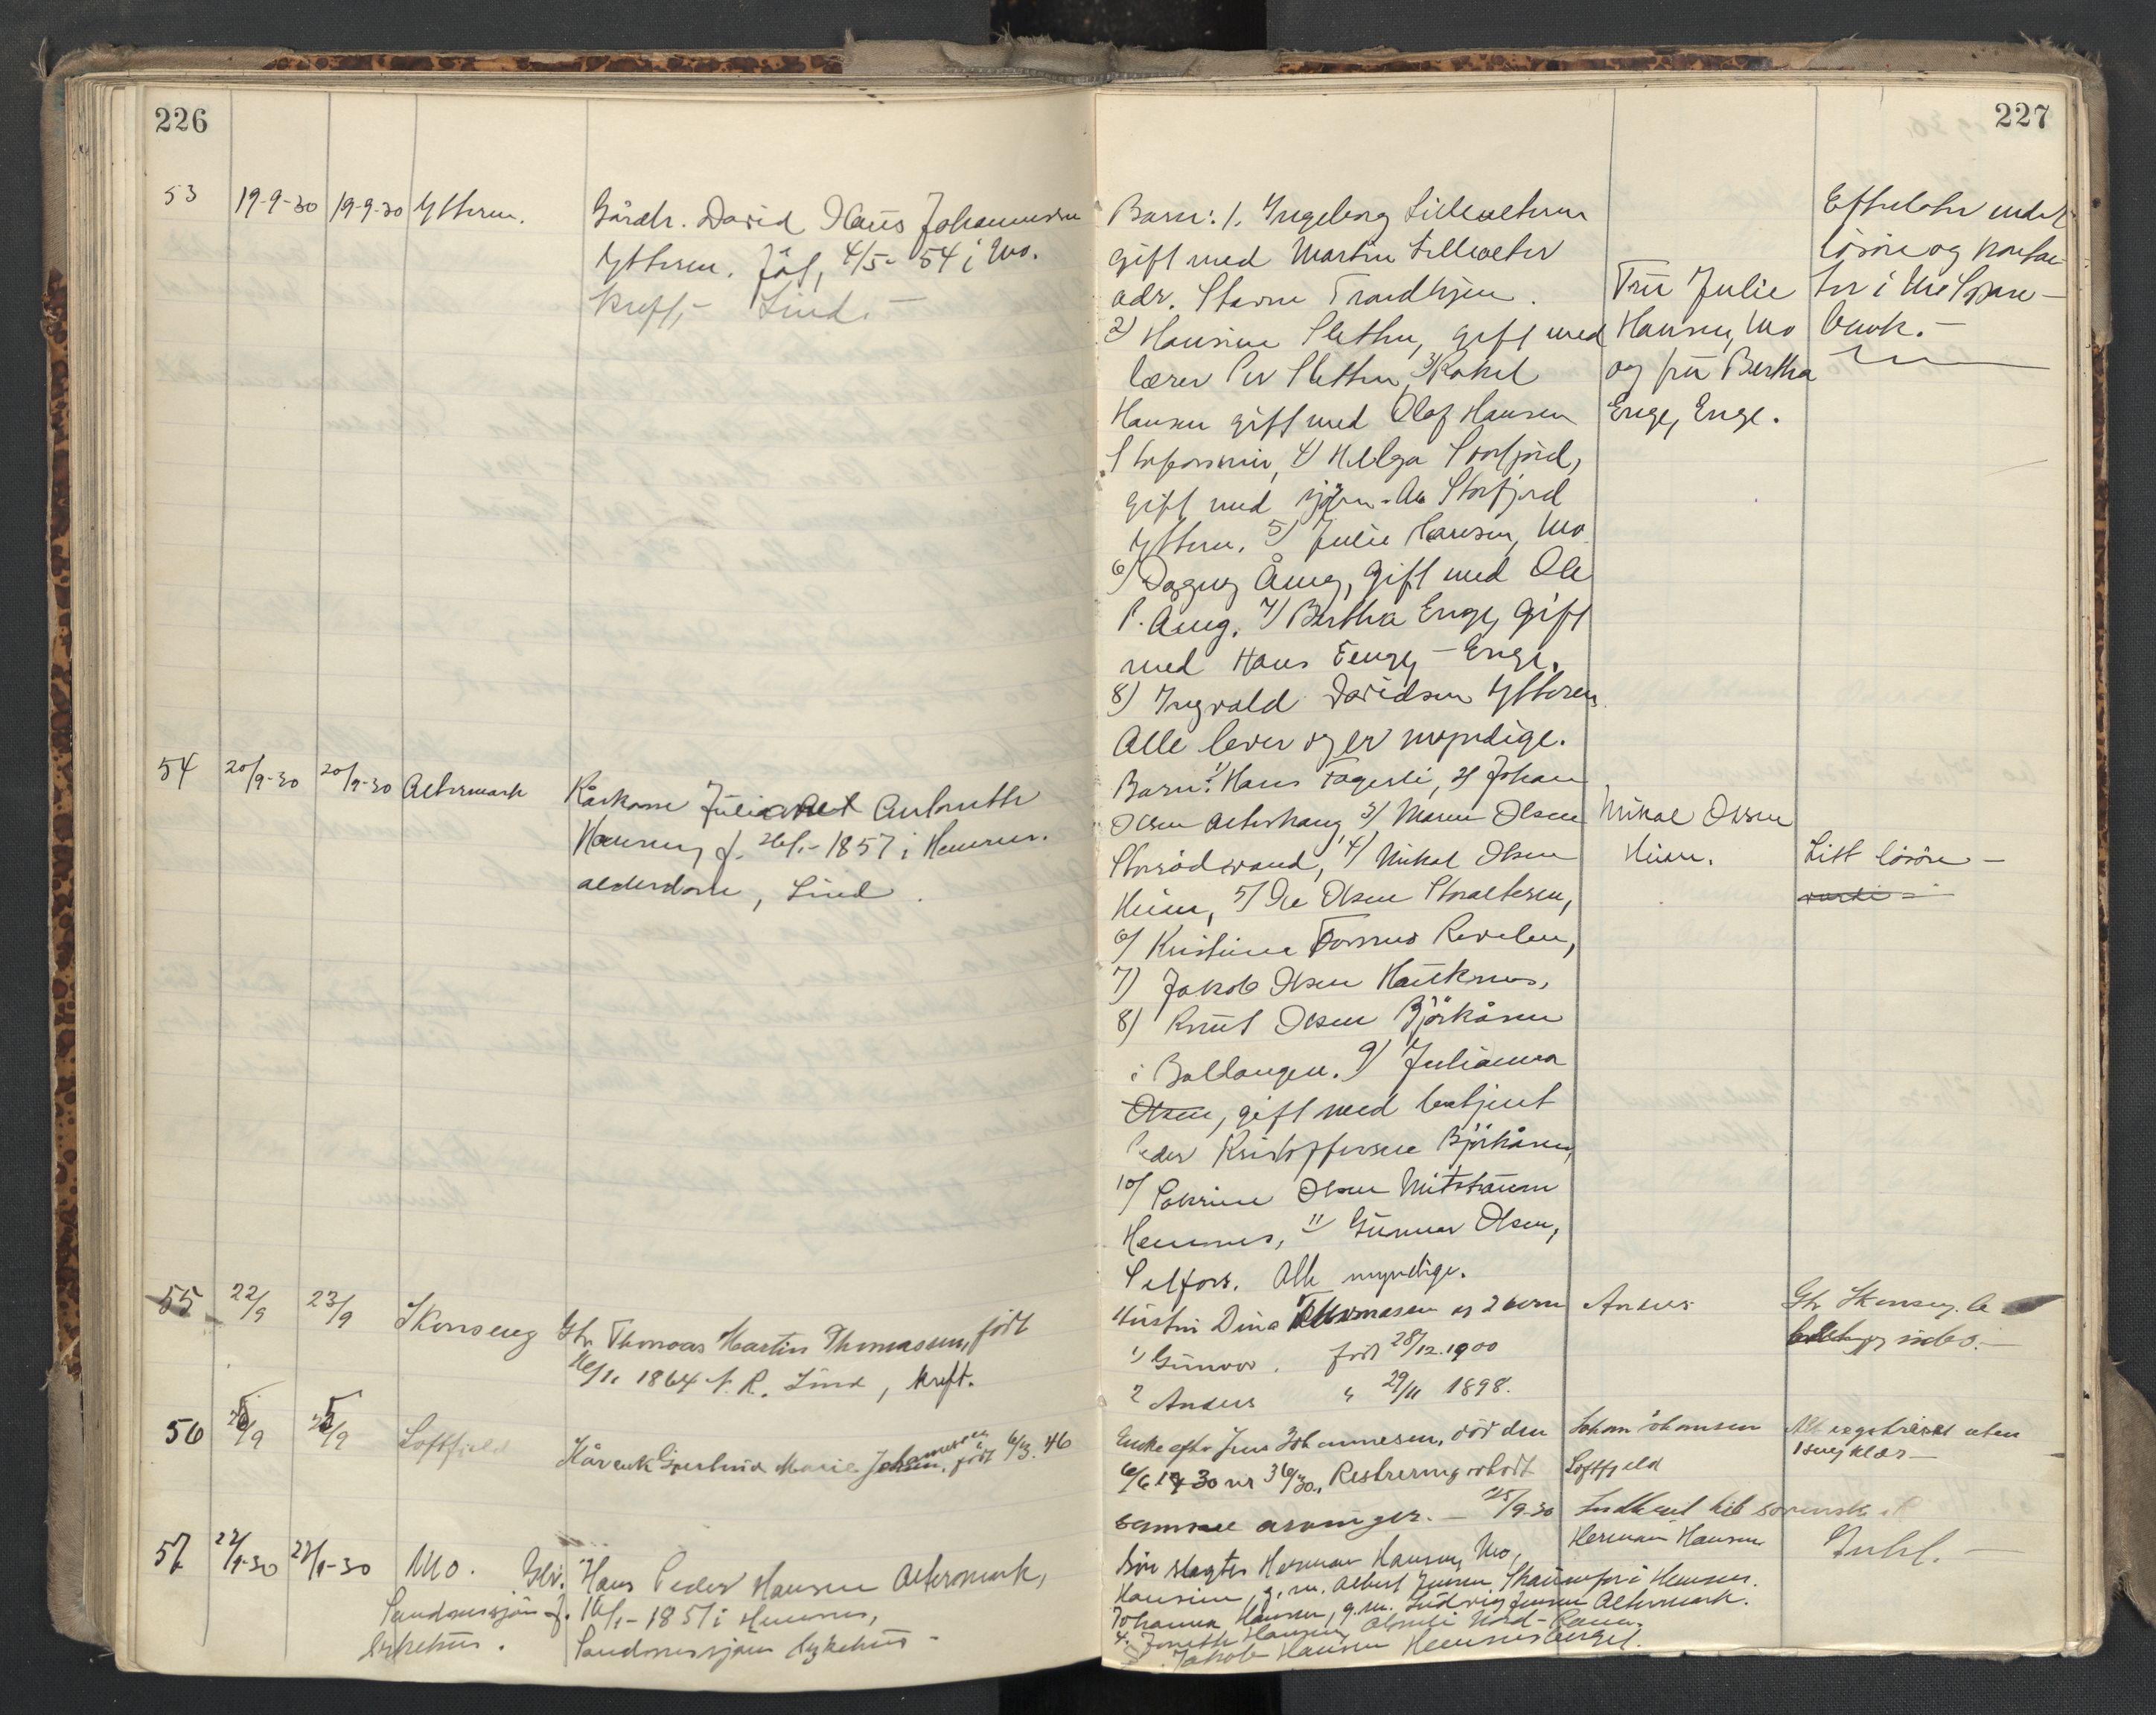 226
53 19-9-30 19-9-30 Ytteren. Gårdbr. David Hans Johannessen
Ytteren. Föt, 4/5-54 i Mo.
Kreft, – Lind. –
54 20/9-30 20/9-30 Altermark Kårkone Julianna Anbrette
Hansen, f. 26/1-1857 i Hemnes.
alderdom, Lind.
55 22/9 23/9 Skonseng Gbr. Thomas Martin Thomassen, födt
16/1. 1864 N. R. Lind, kreft.
56 25/9 25/9 Loftfjeld Kårenk Gjertrud Marie Johannessen, födt 6/3. 46
57 22/9-30 22/9-30 Mo. Gbr. Hans Peder Hansen Altermark,
Sandnessjön f. 16/1-1857 i Hemnes,
sykehus. Sandnessjøen sykehus –
227
Barn: 1. Ingeborg Lillealteren
gift med Martin Lillealter
adr. Stavne Trondhjem.
2) Hansine Sletten, gift med
lærer Per Sletten, 3) Rakel
Hansen gift med Olaf Hansen
Storforsmin, 4) Helga Storfjord,
gift med Ole Storfjord
Ytteren. 5) Julie Hansen, Mo
6) Dagny Aaneg, gift med Ole
P. Aaneg. 7) Bertha Enge, gift
med Hans Enge, – Enge.
8) Ingvald Davidsen Ytteren.
Alle lever og er myndige.
Fru Julie
Hansen, Mo
og fru Bertha
Enge, Enge.
Efterlater
lösöre og
i Mo Spare-
bank. –
Barn: 1) Hans Fagerli, 2) Johan
Olsen Alterhaug 3) Maren Olsen
Storrödvand, 4) Mikal Olsen
Heien, 5) Ole Olsen Storalteren,
6) Kristine Forsnes Revelen,
7) Jakob Olsen Hauknes,
8) Knut Olsen Björkåsen
i Ballangen. 9) Julianna
Olsen, gift med betjent
Peder Kristoffersen Björkåsen,
10) Petrine Olsen
Hemnes, 11) Gunnar Olsen,
Selfors. Alle myndige.
Mikal Olsen
Heien.
Litt lösöre –
Hustru Dina Thomassen og 2 barn
1) Gunvor. född 28/12.1900
2 Anders " 29/11 1898.
Anders
Gbr Skonseng.
indbo. –
Enke efter Jens Johannesen, död den
6/6 1930 nr 36/30. Registrering
samme arvinger. – 25/9-30
Johan Johansen
Loftfjeld
Alt registreret uten
klær –
Sön slagter Herman Hansen, Mo,
Hansine, g. m. Albert Jensen, i Hemnes.
Johanna Hansen, g.m. Ludvig Jensen Altermark.
4. Hansen, Nord-Rana.
5. Jakob Hansen Hemnesberget.
Herman Hansen
Intet. –